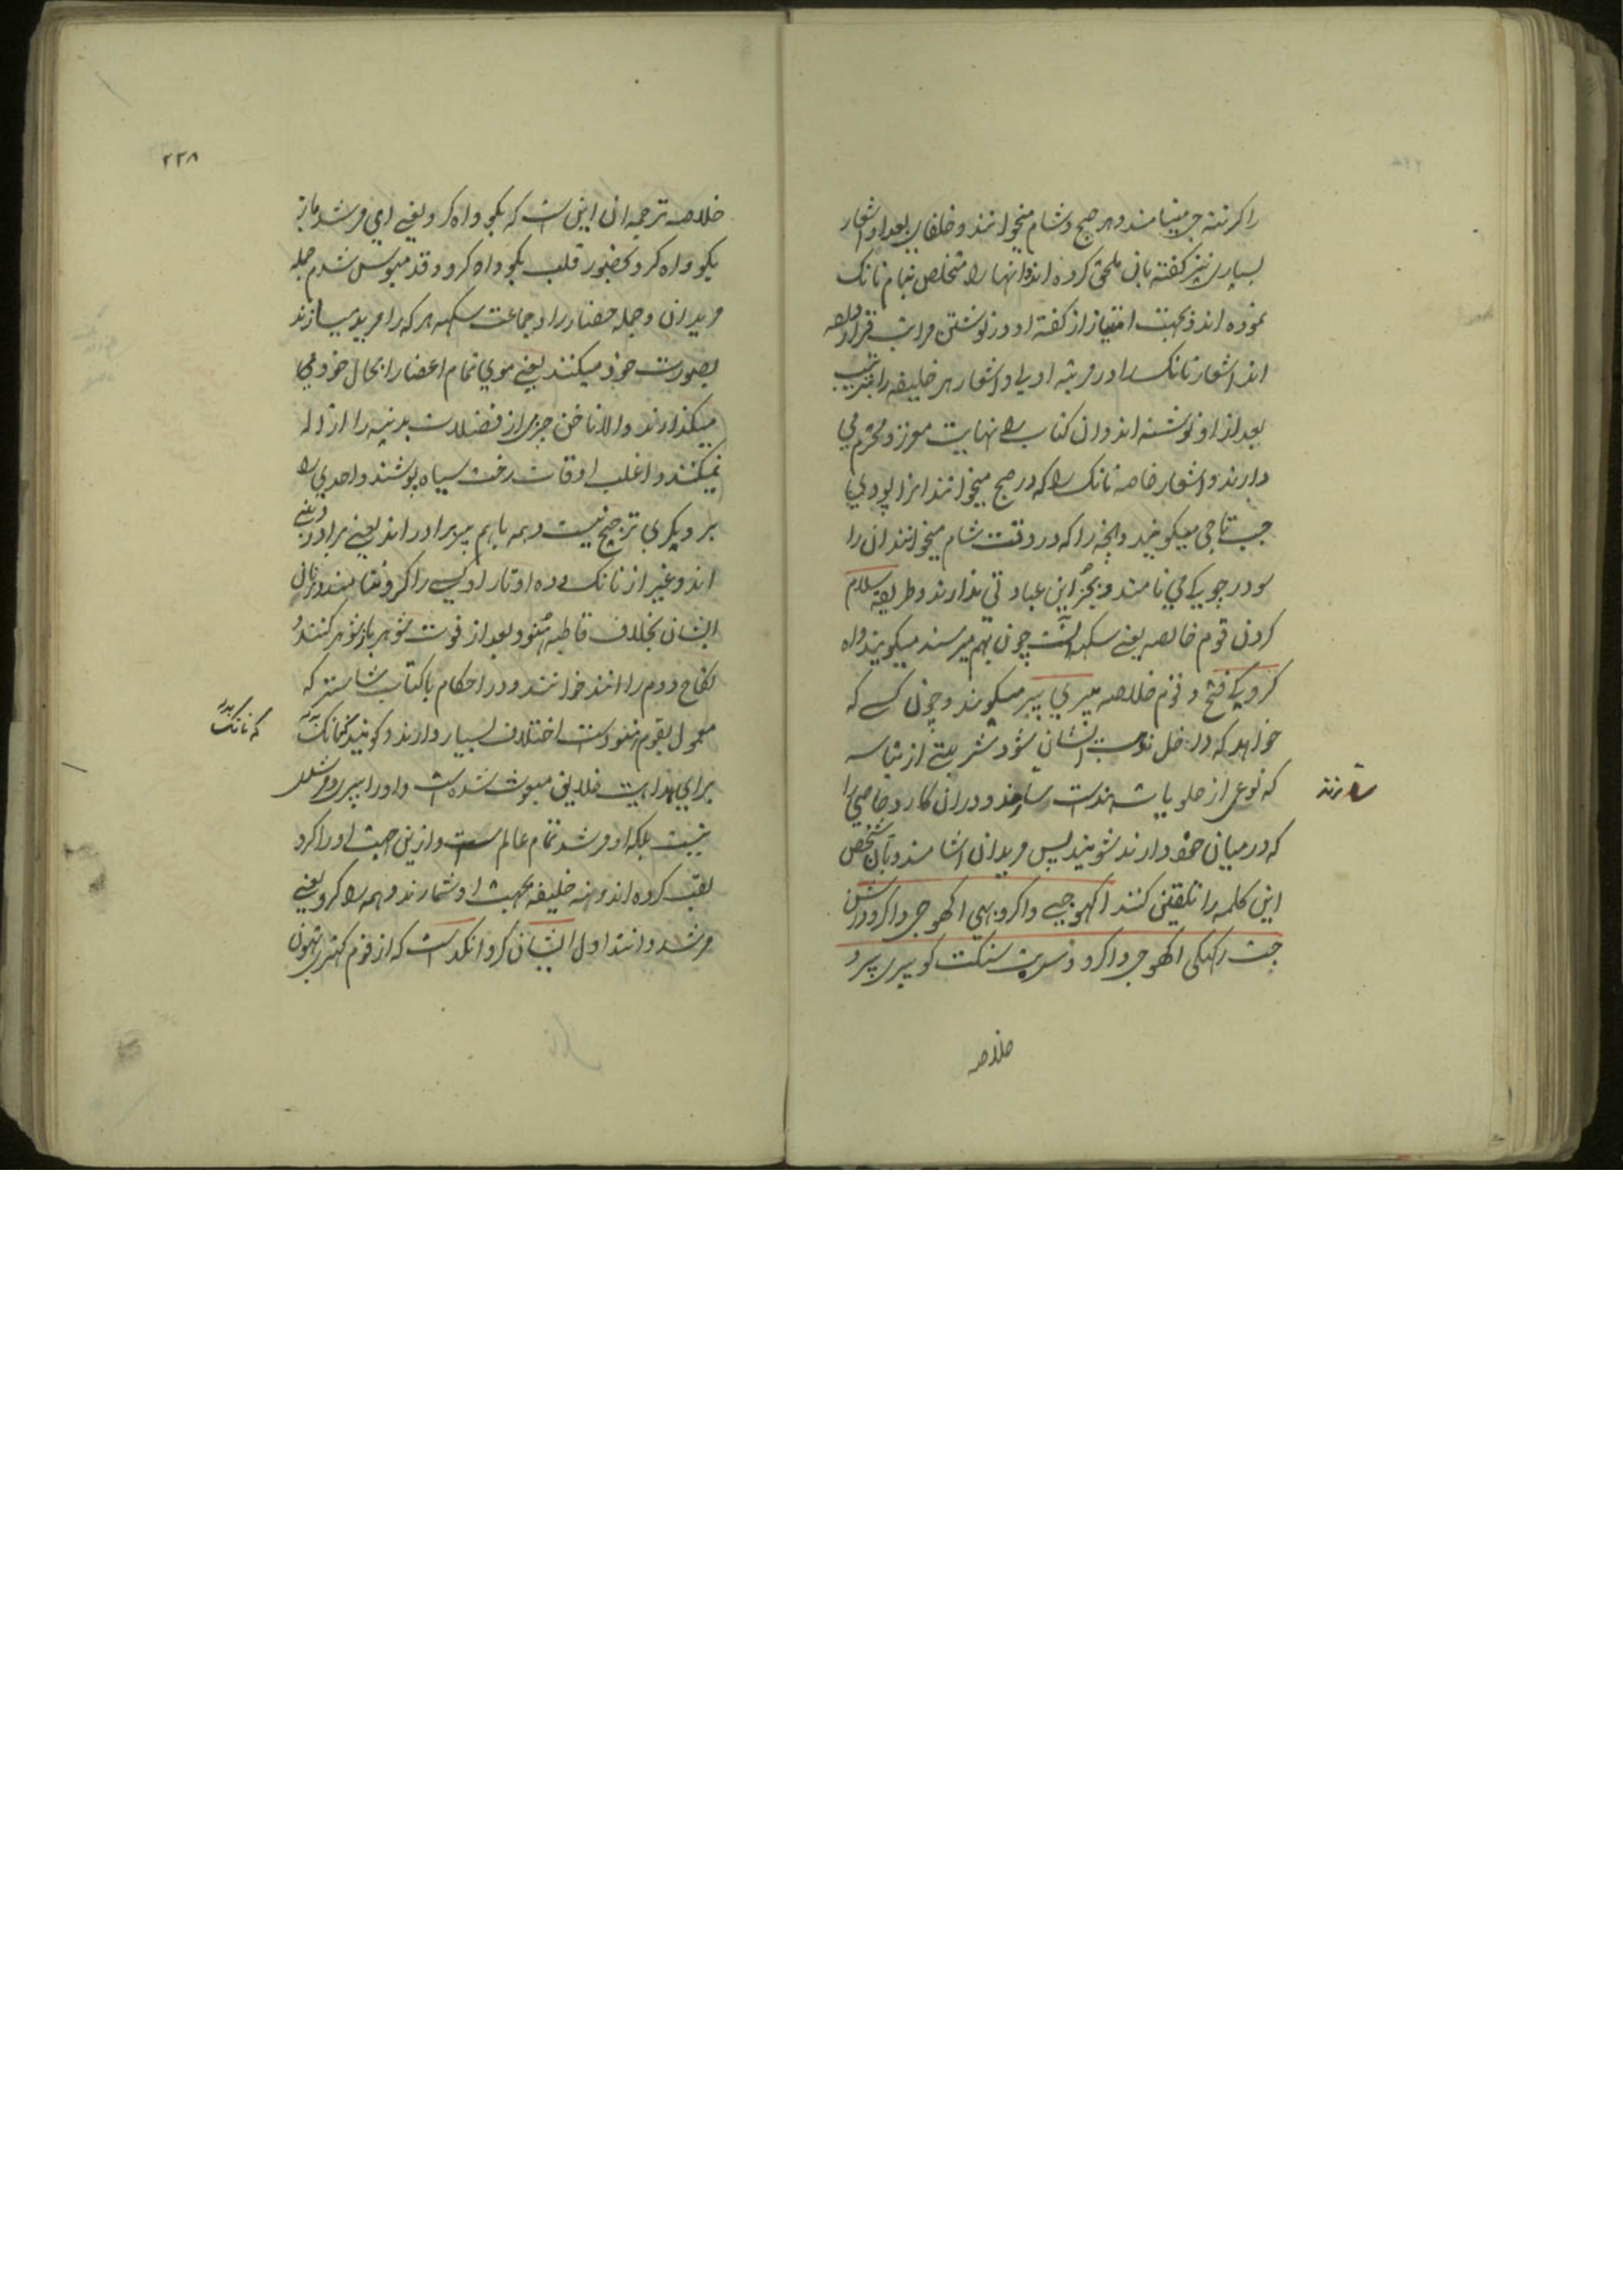 را کرنتهه جی مینامند و هر صبح و شام میخوانند و خلفای بعد او اشعار
بسیاری نیز گفته بان ملحق کرده اند و انها را متخلص بنام نانک
نموده اند و بجهت امتیاز از گفته او در نوشتن مراتب قرار داده
اند اشعار نانک را در مرتبه اولی و اشعار هر خلیفه را بترتیب
بعد از او نوشته اند و ان کتاب را نهایت معزز و محترم می
دارند و اشعار خاصه نانک را که در صبح میخوانند انرا پودی
جپ تاجی میگویند و انچه را که در وقت شام میخوانند ان را
سودر چوپکی می نامند و بجز این عبادتی ندارند و طریقه سلام
کردن قوم خالصه یعنی سکهه انست چون بهم میرسند میگویند واه
کرو کی فتح و قوم خلاصه میری پیر میگویند و چون کسی که
خواهد که داخل مذهب ایشان شود شربتی از بتاسه
که نوعی از حلویات هندست سازند و دران کارد خاصی را
سازند
که در میان خود دارند بشویند پس مریدان اشامند و بان شخص
این کلمه را تلقین کنند اکهو جی واکرو بهی اکهو جی واکرو درشن
چت رکهکی اکهو جی واکرو و سربت سنکت کو پیری پیرو
خلاصه
۲۳۸
خلاصه ترجمه ان این است که بکو واه کرو یعنی ای مرشد باز
بکو واه کرو بحضور قلب بکو واه کرو و قدمبوس شدم جمله
مریدان و جمله حضار را و جماعت سکهه هر که را مرید میسازند
بصورت خود میکنند یعنی موی تمام اعضا را بحال خود می
میگذارند و الا ناخن چیزی از فضلات بدنیه را ازاله
نمیکنند و اغلب اوقات رخت سیاه پوشند و احدی را
بر دیگری ترجیح نیست و همه باهم پیر برادر اند یعنی برادر دینی
اند و غیر از نانک و ده اوتار او کسی را کرو نشناسند و زنان
ایشان بخلاف قاطبه هنود بعد از فوت شوهر باز شوهر کنند و
نکاح دوم را انند خوانند و در احکام با کتاب شاستر که
معمول بقوم هنودست اختلاف بسیار دارند و گویند که نانک
که نانک
برای هدایت خلایق مبعوث شده است و او را پیر و مرشد
نیست بلکه او مرشد تمام عالم است و ازین جهت او را کرو
لقب کرده اند و نه خلیفه بجهت او شمارند و همه را کرو یعنی
مرشد دانند اول ایشان کرو انکد است که از قوم کهتری تهون